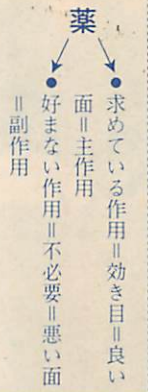 薬
●求めている作用=効き目=良い
面=主作用
●好まない作用=不必要=悪い面
=副作用